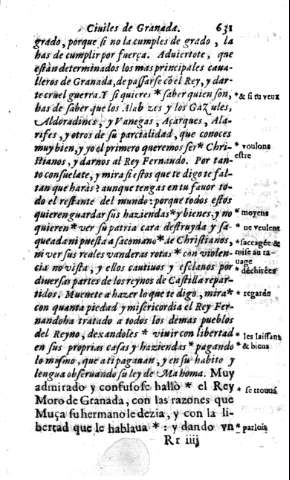 Ciuiles de Granada. 631
grado, porque si no la cumples de grado, la
has de cumplir por fuerça. Aduiertote, que
estàn determinados los mas principales caua-
lleros de Granada, de passarse cõ el Rey, y dar-
te cruel guerra. Y si quieres * saber quien son, * & si tu veux
has de saber que los Alabezes y los Gazules,
Aldoradines, y Vanegas, Açarques, Ala-
rifes, y otros de su parcialidad, que conoces
muy bien, y yo el primero queremos ser * Chri- * voulons
stianos, y darnos al Rey Fernando. Por tan- estre
to consuelate, y mira si estos que te digo te fal-
tan que haràs? aunque tengas en tu fauor to-
do el restante del mundo: porque todos estos
quieren guardar sus haziendas * y bienes, y no * moyens
quieren * ver su patria cara destruyda y sa- * ne veulent
queada ni puesta a sacomano * de Christianos, * saccagée &
ni ver sus reales vanderas rotas * con violen- mise au ra-
cia no vista, y ellos cautiuos y esclauos por uage
diuersas partes de los reynos de Castilla repar- * déchirées
tidos. Mueuete a hazer lo que te digo, mira * * regarde
con quanta piedad y misericordia el Rey Fer-
nando ha tratado a todos los demas pueblos
del Reyno, dexandoles * viuir con libertad * les laissant
en sus proprias casas y haziendas * pagando * & biens
lo mismo, que a ti pagauan, y en su habito y
lengua obseruando su ley de Mahoma. Muy
admirado y confuso se hallò * el Rey * se trouua
Moro de Granada, con las razones que
Muça su hermano le dezia, y con la li-
bertad que le hablaua * : y dando vn * parloit
Rr iiij